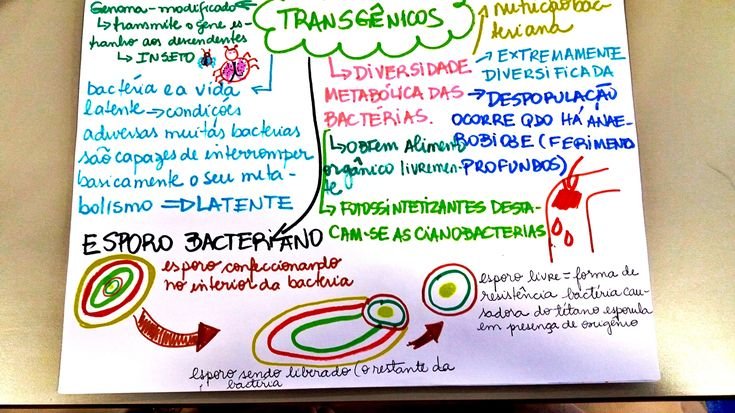 Genoma - modificado
↳ transmite o gene es-
tranho aos descendentes
↳ INSETO
TRANSGÊNICOS
nutrição bac-
teriana
bactéria e a vida
latente → condições
adversas muitas bacterias
são capazes de interromper
basicamente o seu meta-
bolismo ⇒ DLATENTE
↳ DIVERSIDADE
METABÓLICA DAS
BACTÉRIAS.
→ EXTREMAMENTE
DIVERSIFICADA
→ DESPOPULAÇÃO
OCORRE QDO HÁ ANAE-
ROBIOSE (FERIMENO
PROFUNDOS)
↳ OBTEM ALIMENTO
orgânico livremen-
te
↳ FOTOSSINTETIZANTES DESTA-
CAM-SE AS CIANOBACTERIAS
ESPORO BACTERIANO
esporo confeccionando
no interior da bacteria
esporo sendo liberado (o restante da
bactéria
esporo livre = forma de
resistência bactéria cau-
sadora do tétano esporula
em presença de oxigênio